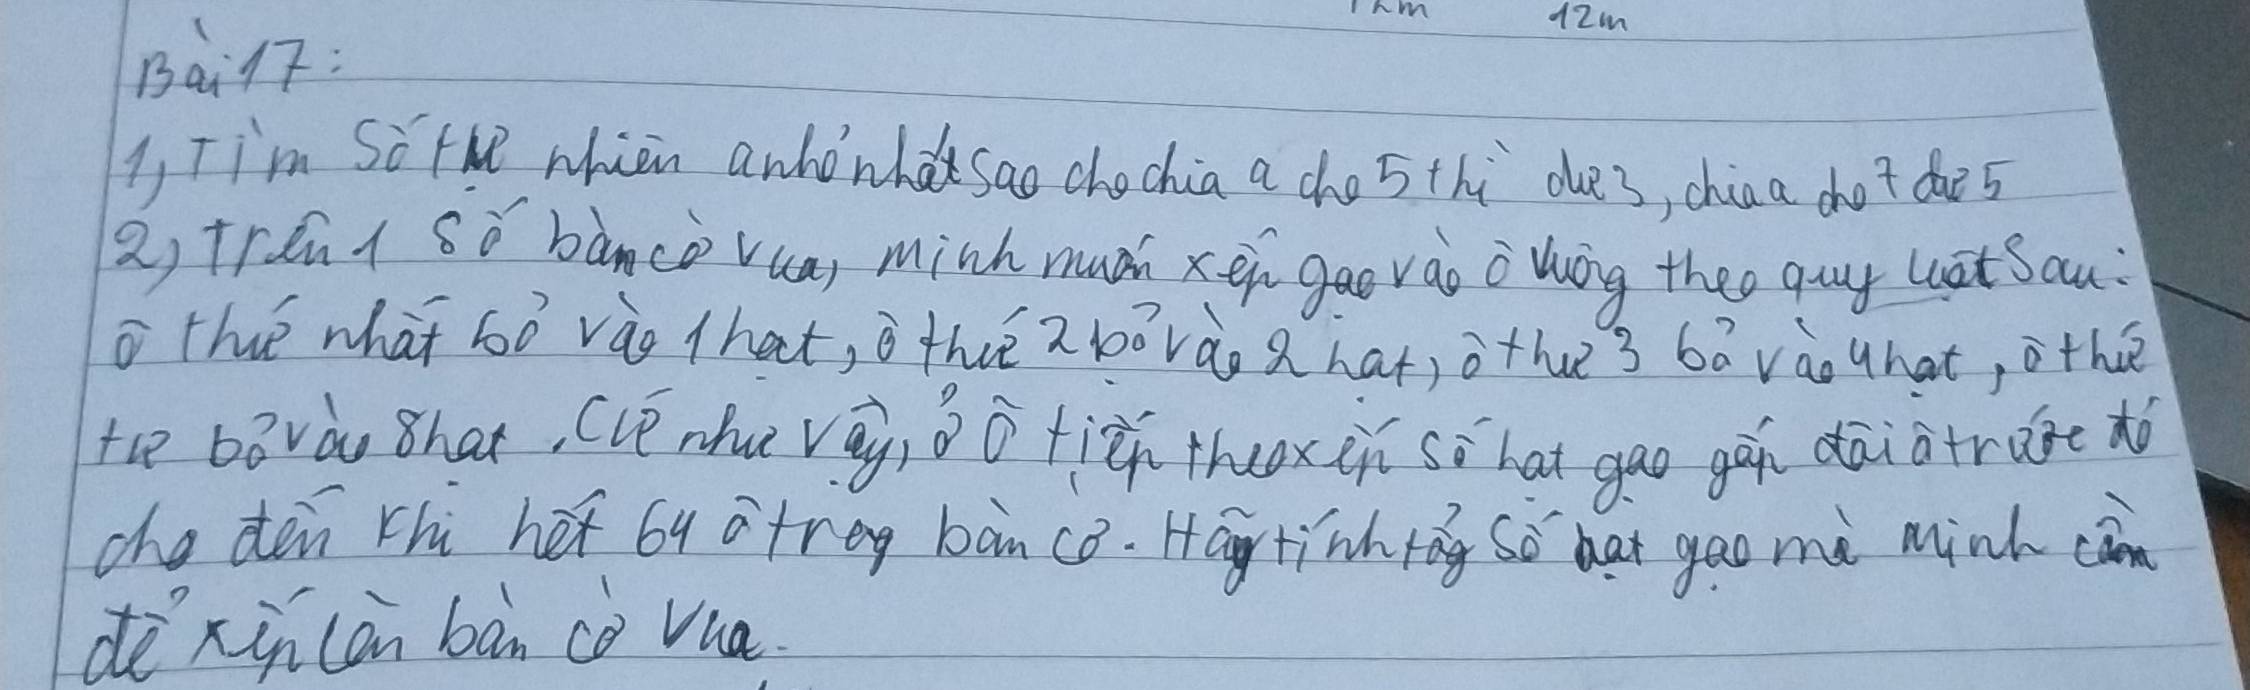 12m 12m
Bài 17:
1, Tìm số tự nhiên a nhỏ nhất sao cho chia a cho 5 thì dư 3, chia a cho 7 dư 5
2, Trên 1 số bàn cờ vua, Minh muốn xếp gạo vào ô vuông theo quy luật sau:
ô thứ nhất bỏ vào 1 hạt, ô thứ 2 bỏ vào 2 hạt, ô thứ 3 bỏ vào 4 hạt, ô thứ
tư bỏ vào 8 hạt. Cứ như vậy, ở ô tiếp theo xếp số hạt gạo gấp đôi ô trước đó
cho đến khi hết 64 ô trog bàn cờ. Hãy tính tổg số hạt gạo mà Minh cần
để xếp lên bàn cờ vua.